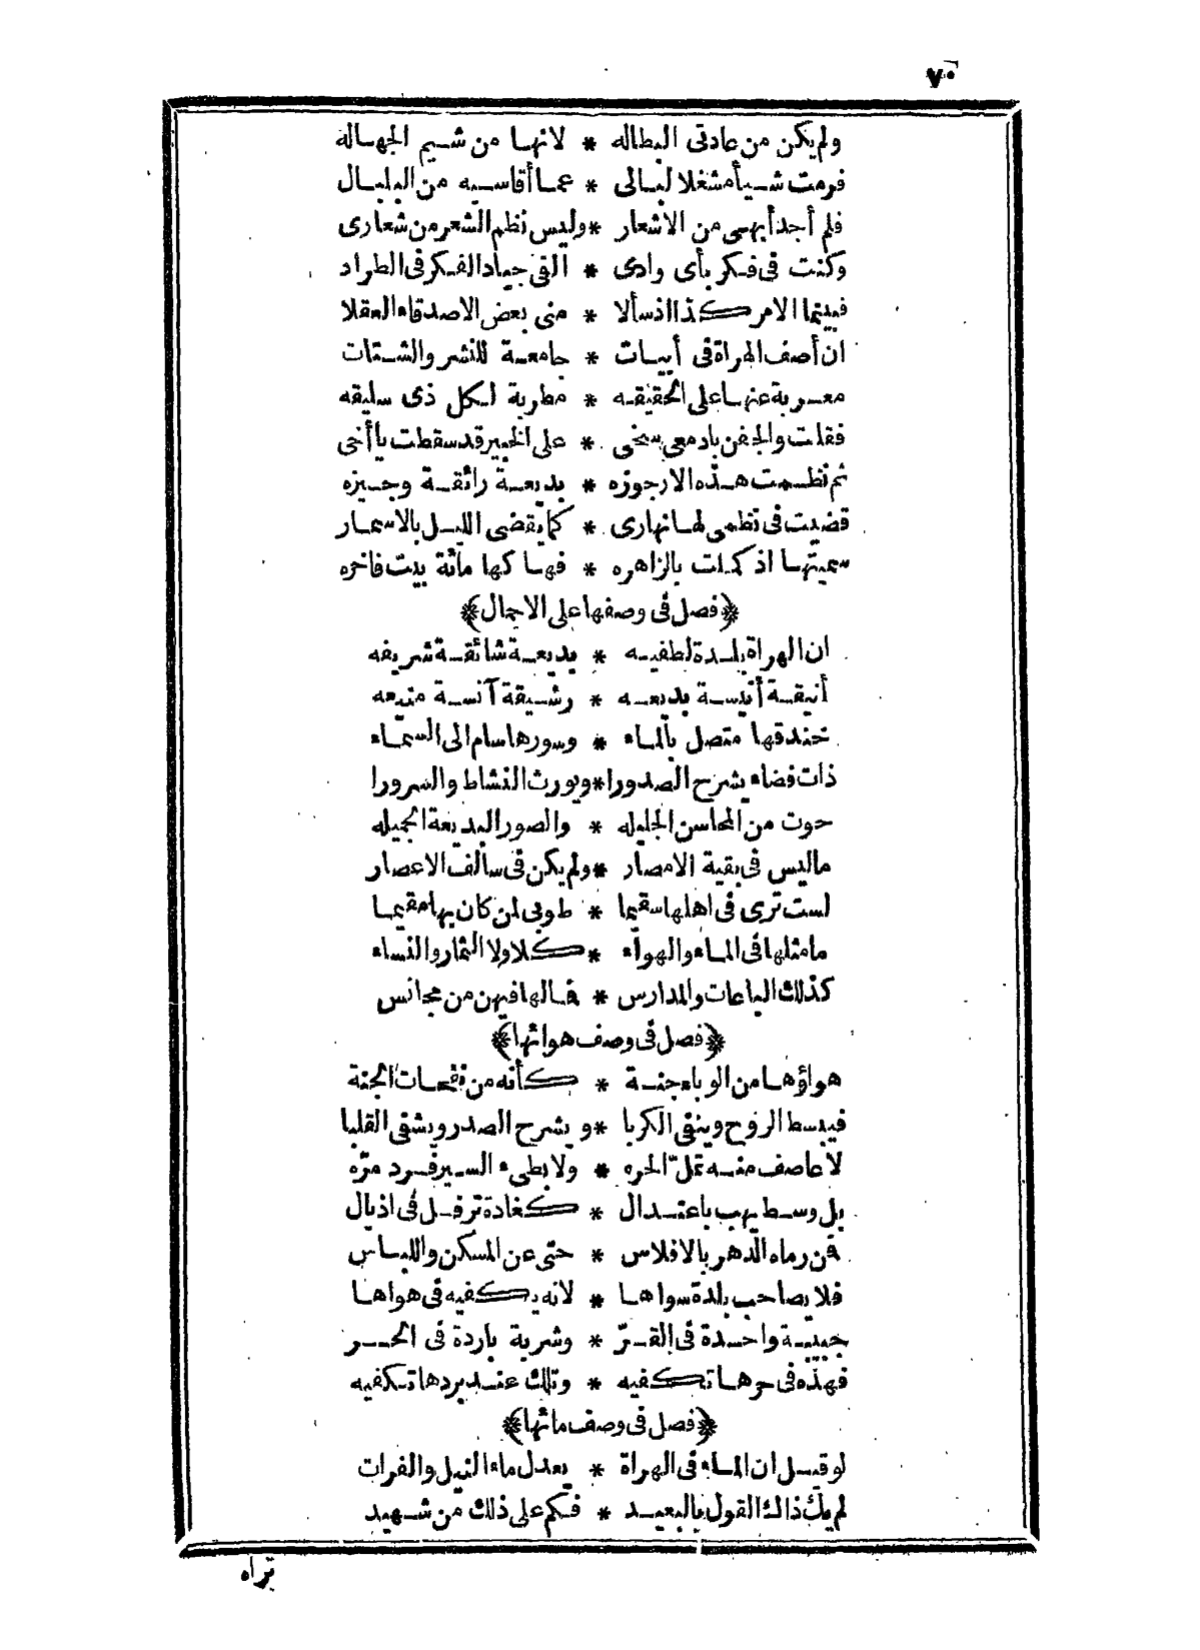 ٧٠
ولم يكن من عادتى البطاله * لانها من شيم الجهاله
فرمت شيأ مشغلا لبالى * عما أقاسيه من البلبال
فلم أجد أبهى من الاشعار * وليس نظم الشعر من شعارى
وكنت فى فكر بأى وادى * ألقى جياد الفكر فى الطراد
فبينما الامر كذا اذ سألا * منى بعض الاصدقاء العقلا
ان أصف الهراة فى أبيات * جامعة للنشر والشتات
معربة عنها على الحقيقه * مطربة لكل ذى سليقه
فقلت والجفن بادمعى سخى * على الخبير قد سقطت يا أخى
ثم نظمت هذه الارجوزه * بديعة رائقة وجيزه
قضيت فى نظمى لها نهارى * كما يقضى الليل بالاسمار
سميتها اذ كملت بالزاهره * فها كها مائة بيت فاخره
﴿فصل فى وصفها على الاجمال﴾
ان الهراة بلدة لطفيه * بديعة شائقة شريفه
أنيقة أنيسة بديعه * رشيقة آنسة منيعه
خندقها متصل بالماء * وسورها سام الى السماء
ذات فضاء يشرح الصدورا * ويورث النشاط والسرورا
حوت من المحاسن الجليله * والصور البديعة الجميله
ماليس فى بقية الامصار * ولم يكن فى سالف الاعصار
لست ترى فى اهلها سقيما * طوبى لمن كان بها مقيما
مامثلها فى الماء والهواء * كلا ولا الثمار والنساء
كذلك الباعات والمدارس * فمالها فيهن من مجانس
﴿فصل فى وصف هوائها﴾
هواؤها من الوباء جنة * كأنه من نفحات الجنة
فيبسط الروح وينفى الكربا * ويشرح الصدر ويشفى القلبا
لا عاصف منه تمل الحره * ولا بطىء السير فرد مره
بل وسط يهب باعتدال * كغادة ترفل فى اذيال
فمن رماه الدهر بالافلاس * حتى عن المسكن واللباس
فلا يصاحب بلدة سواها * لانه يكفيه فى هواها
جبيبة واحدة فى القرّ * وشربة باردة فى الحر
فهذه فى حرها تكفيه * وتلك عند بردها تكفيه
﴿فصل فى وصف مائها﴾
لو قيل ان الماء فى الهراة * يعدل ماء النيل والفرات
لم يك ذاك القول بالبعيد * فكم على ذلك من شهيد
تراه